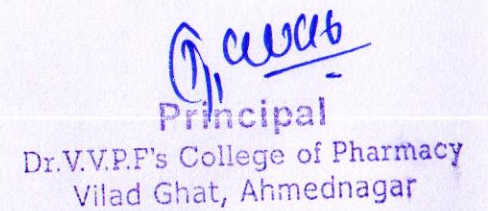 Principal
Dr.V.V.P.F's College of Pharmacy
Vilad Ghat, Ahmednagar